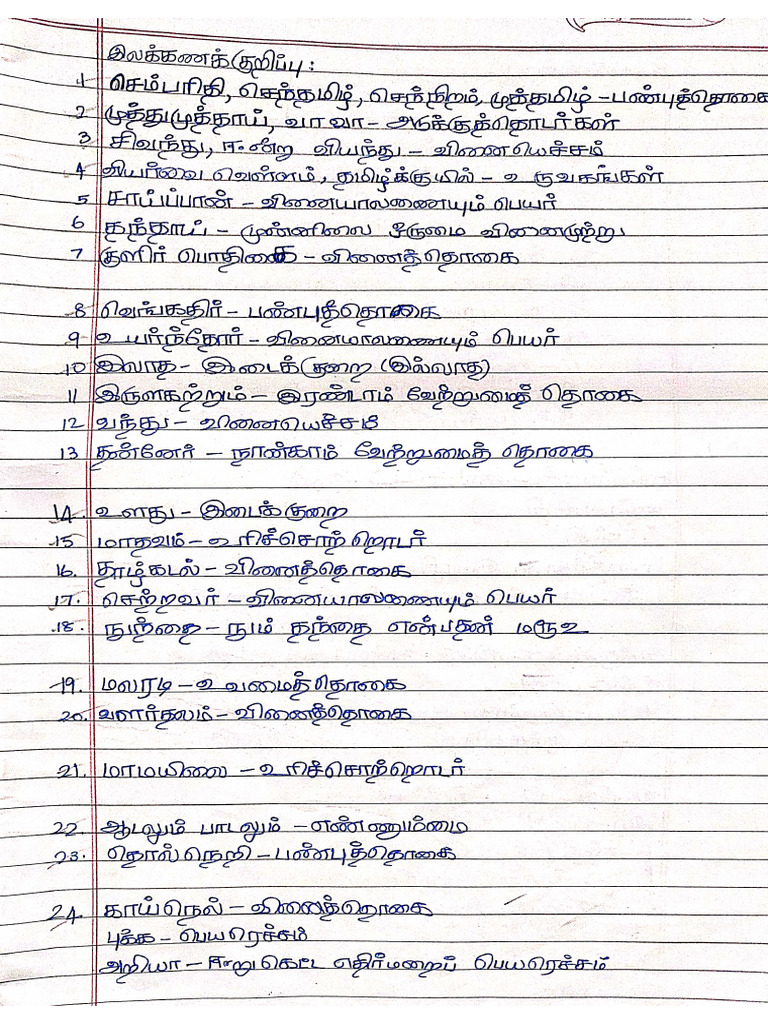 இலக்கணக்குறிப்பு:
1 செம்பரிதி, செந்தமிழ், செந்நிறம், முத்தமிழ் - பண்புத்தொகை
2 முத்துமுத்தாய், வா வா - அடுக்குத்தொடர்கள்
3 சிவந்து, ஈன்று வியந்து - வினையெச்சம்
4 வியர்வை வெள்ளம், தமிழ்க்குயில் - உருவகங்கள்
5 சாய்ப்பான் - வினையாலணையும் பெயர்
6 தந்தாய் - முன்னிலை ஒருமை வினைமுற்று
7 குளிர் பொதிகை - வினைத்தொகை
8 வெங்கதிர் - பண்புத்தொகை
9 உயர்ந்தோர் - வினையாலணையும் பெயர்
10 இலாத - இடைக்குறை (இல்லாத)
11 இருளகற்றும் - இரண்டாம் வேற்றுமைத் தொகை
12 வந்து - வினையெச்சம்
13 தன்னேர் - நான்காம் வேற்றுமைத் தொகை
14. உளது - இடைக்குறை
15 மாதவம் - உரிச்சொற்றொடர்
16. தாழ்கடல் - வினைத்தொகை
17. செற்றவர் - வினையாலணையும் பெயர்
18. நுந்தை - நும் தந்தை என்பதன் மரூஉ
19. மலரடி - உவமைத்தொகை
20. வளர்தலம் - வினைத்தொகை
21. மாமயிலை - உரிச்சொற்றொடர்
22. ஆடலும் பாடலும் - எண்ணும்மை
23. தொல்நெறி - பண்புத்தொகை
24. காய்நெல் - வினைத்தொகை
புக்க - பெயரெச்சம்
அறியா - ஈறுகெட்ட எதிர்மறைப் பெயரெச்சம்